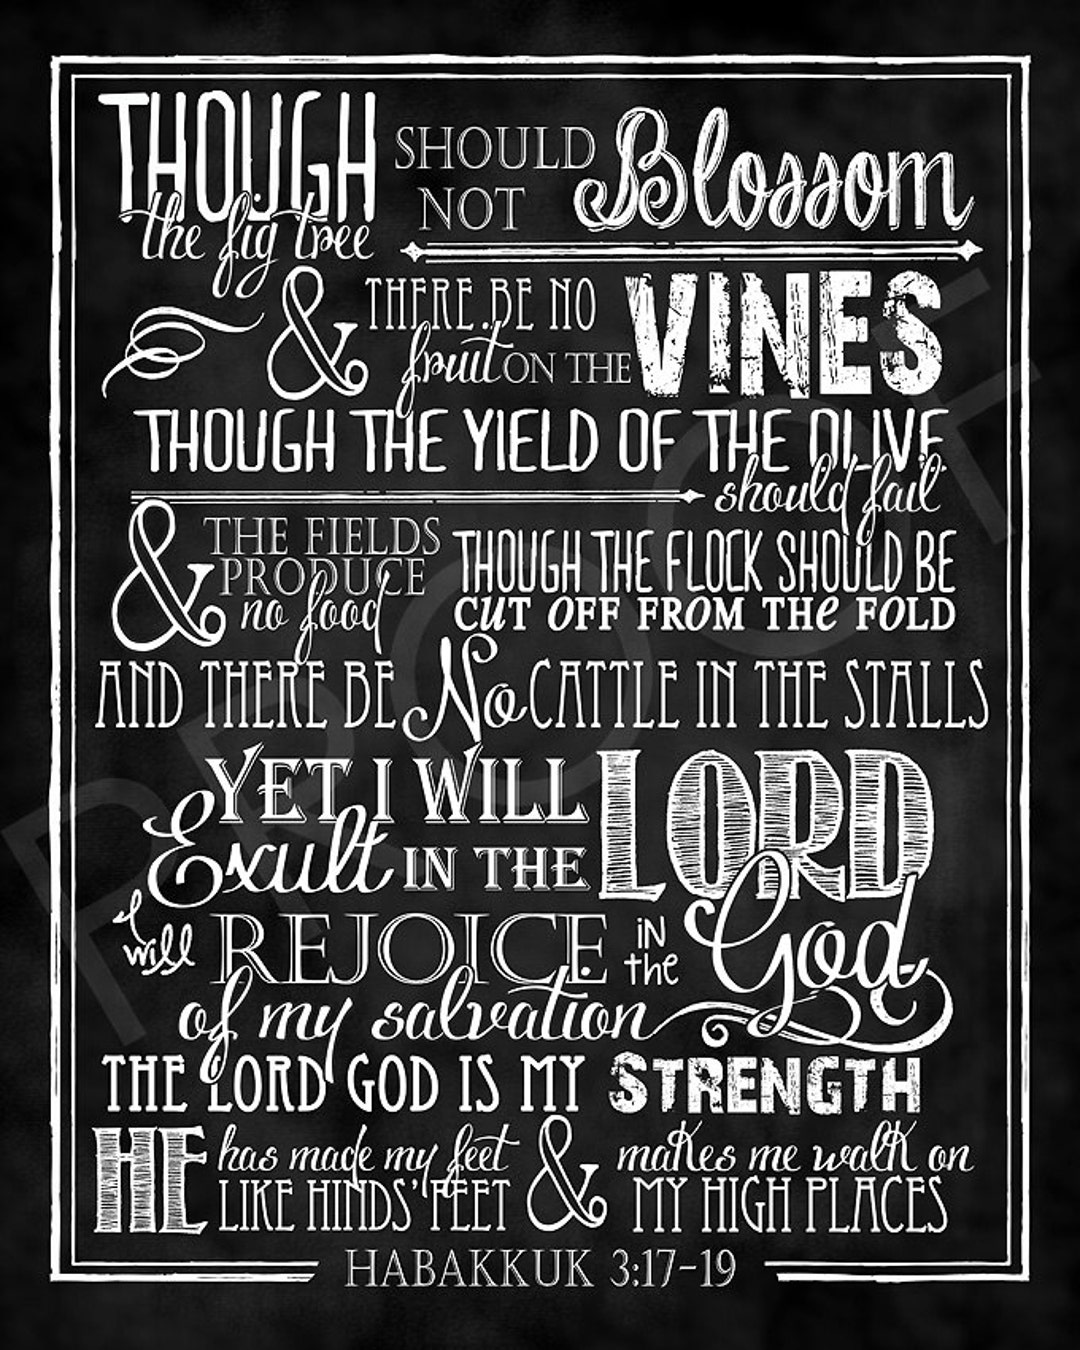 THOUGH
the fig tree
SHOULD
NOT
Blossom
& THERE BE NO
fruit ON THE
VINES
THOUGH THE YIELD OF THE OLIVE
should fail
& THE FIELDS
PRODUCE
no food
THOUGH THE FLOCK SHOULD BE
CUT OFF FROM THE FOLD
AND THERE BE No CATTLE IN THE STALLS
YET I WILL
Exult IN THE
LORD
I will REJOICE in the God
of my salvation
THE LORD GOD IS MY STRENGTH
HE has made my feet
LIKE HINDS' FEET
& makes me walk on
MY HIGH PLACES
HABAKKUK 3:17-19
PROOF